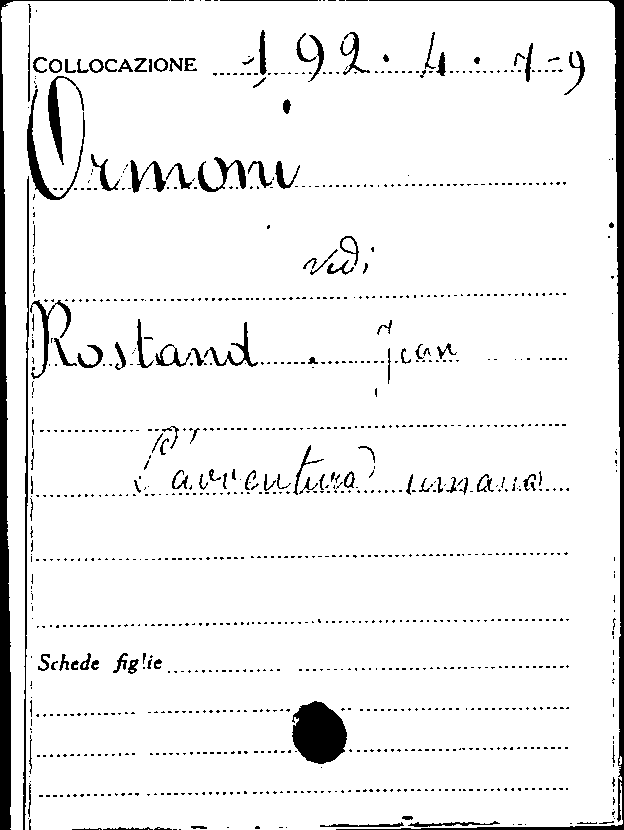 COLLOCAZIONE 192.4.7-9
Ormoni
vedi
Rostand. Jean
L'avventura umana
Schede figlie